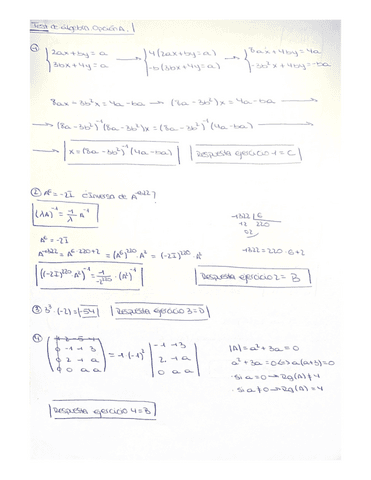 Test de álgebra Opción A.
① { 2ax+by=a
3bx+4y=a → { 4(2ax+by=a)
-b(3bx+4y=a) → { 8ax+4by=4a
-3b²x+4by=-ba →
8ax-3b²x=4a-ba → (8a-3b²)x=4a-ba →
→ (8a-3b²)⁻¹(8a-3b²)x=(8a-3b²)⁻¹(4a-ba) →
→ x=(8a-3b²)⁻¹(4a-ba) Respuesta ejercicio 1=C
② A⁶=-2I ¿Inversa de A¹³²²?
(λA)⁻¹=1/λ A⁻¹
1322 | 6
12 220
02
A⁶=-2I
A¹³²²=A⁶·²²⁰⁺²=(A⁶)²²⁰·A²=(-2I)²²⁰·A² 1322=220·6+2
((-2I)²²⁰·A²)⁻¹=1/-2²²⁰·(A²)⁻¹ Respuesta ejercicio 2=B
③ 3³·(-2)=-54 Respuesta ejercicio 3=D
④ =-1·(-1)² |A|=a²+3a=0
-1 -1 3
2 -1 a
0 a a
a²+3a=0 a(a+3)=0
· si a=0 → rg(A)≠4
· si a≠0 → rg(A)=4
Respuesta ejercicio 4=B